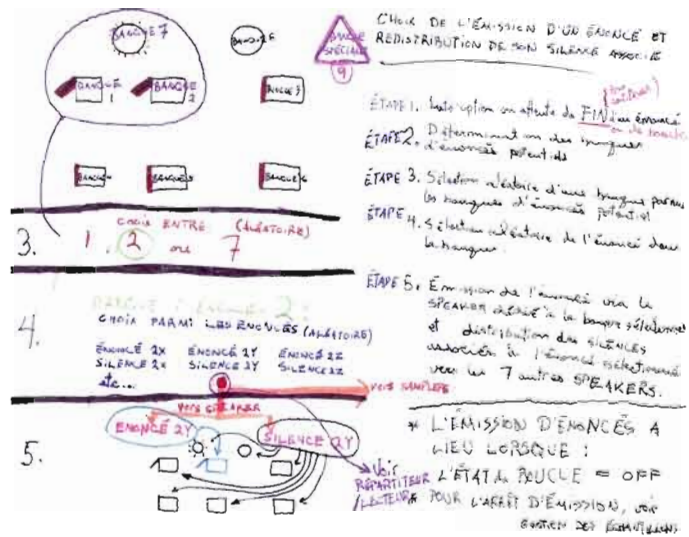 BANQUE 7
BANQUE 8
BANQUE
SPÉCIALE
9
BANQUE
1
BANQUE
2
BANQUE 3
BANQUE 4
BANQUE 5
BANQUE 6
3. 1. 2 ou 7
CHOIX ENTRE (ALÉATOIRE)
4.
BANQUE 2:
CHOIX PARMI LES ÉNONCÉS (ALÉATOIRE)
ÉNONCÉ 2X ÉNONCÉ 2Y ÉNONCÉ 2Z
SILENCE 2X SILENCE 2Y SILENCE 2Z
etc...
VERS SPEAKER
VERS SAMPLEUR
5.
ÉNONCÉ 2Y
SILENCE 2Y
VOIR
RÉPARTITEUR
/LECTEUR
CHOIX DE L'ÉMISSION D'UN ÉNONCÉ ET
REDISTRIBUTION DE SON SILENCE ASSOCIÉ
ÉTAPE 1. en attente de FIN d'un énoncé
ÉTAPE 2. Détermination des banques
d'énoncés potentiels
ÉTAPE 3. Sélection aléatoire d'une banque parmi
les banques d'énoncés potentiels
ÉTAPE 4. Sélection aléatoire de l'énoncé dans
la banque.
ÉTAPE 5. Émission de l'énoncé via le
SPEAKER dédié à la banque sélectionnée
et distribution des SILENCES
associés à l'énoncé sélectionné
vers les 7 autres SPEAKERS.
* L'ÉMISSION D'ÉNONCÉS A
LIEU LORSQUE :
L'ÉTAT BOUCLE = OFF
* POUR L'ARRÊT D'ÉMISSION, voir
GESTION DES ÉCHANTILLONS